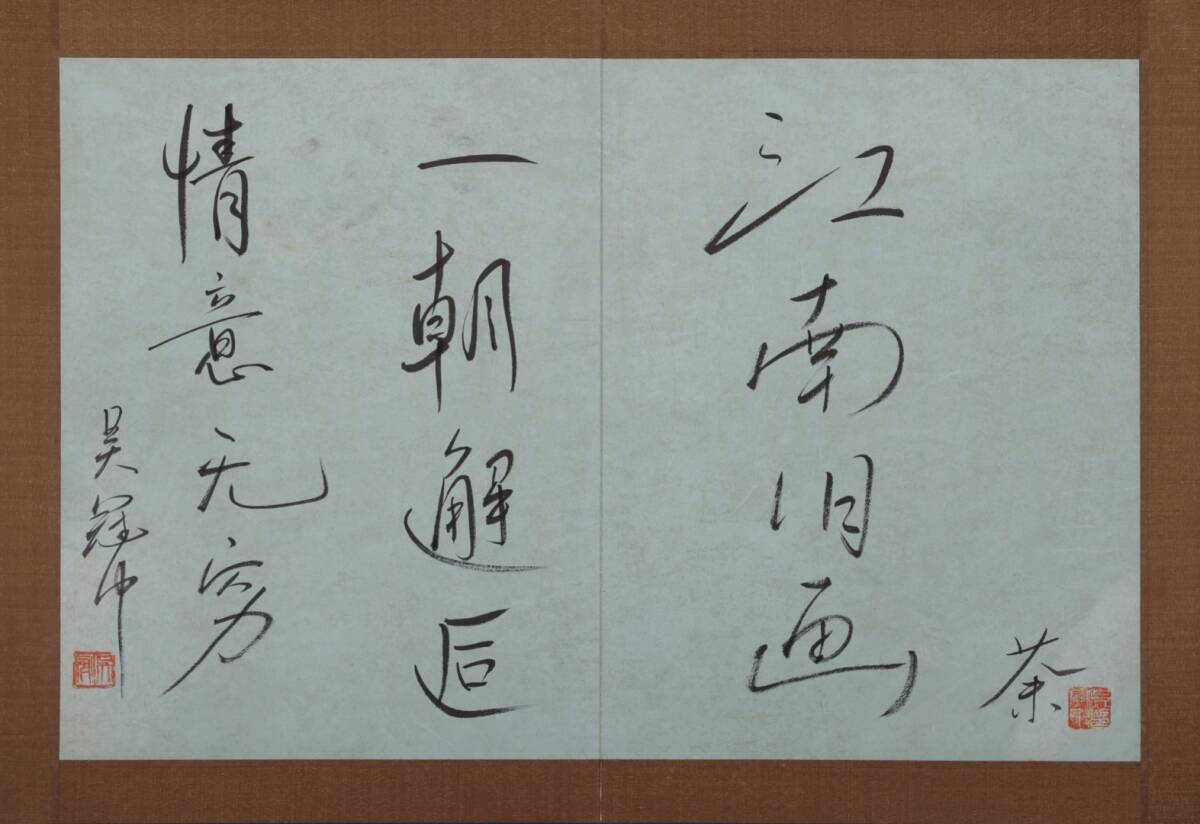 江南旧画
一朝邂逅
情意无穷
吴冠中
荼